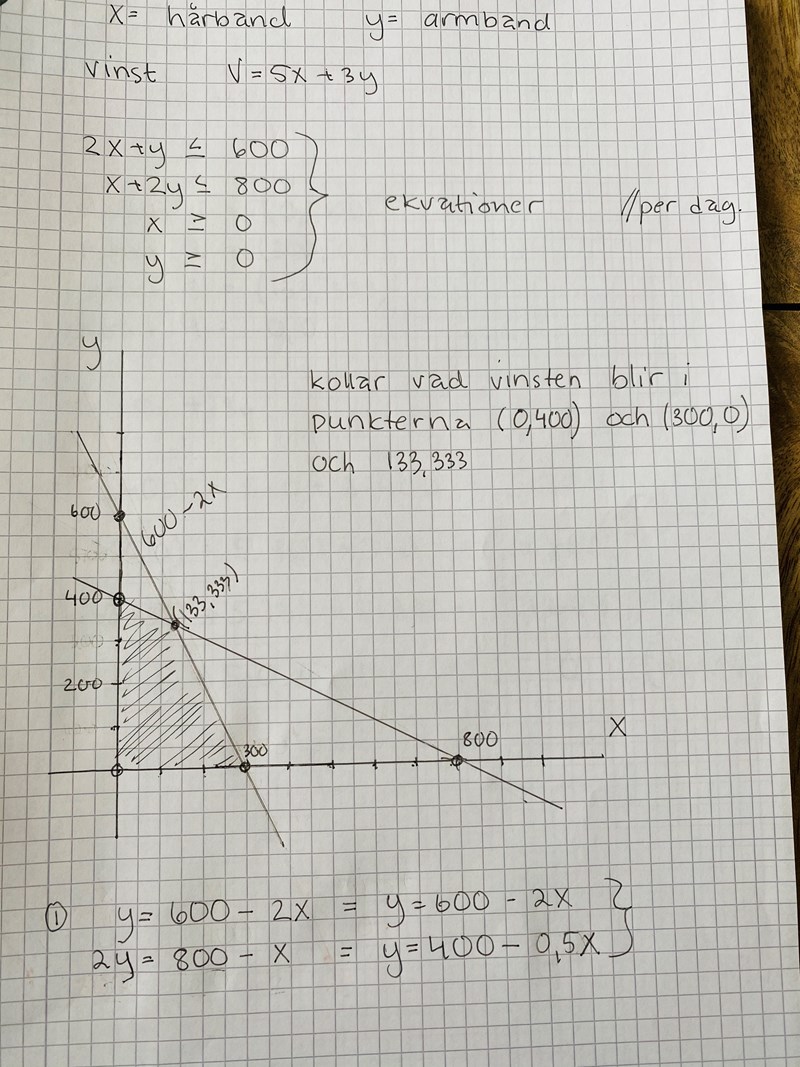 X= hårband y= armband
vinst V=5x+3y
2x+y ≤ 600
x+2y ≤ 800
x ≥ 0
y ≥ 0
ekvationer //per dag.
y
kollar vad vinsten blir i
punkterna (0,400) och (300,0)
och 133,333
600
600-2x
400
(133,333)
200
300
800
X
① y= 600 - 2x = y=600 - 2x
2y= 800 - x = y=400 - 0,5x